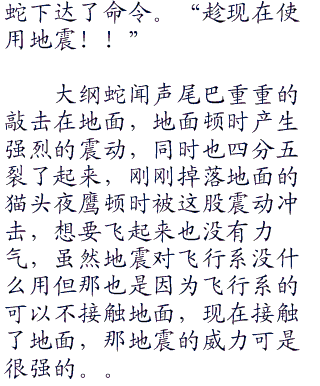 蛇下达了命令。“趁现在使
用地震！！”
大纲蛇闻声尾巴重重的
敲击在地面，地面顿时产生
强烈的震动，同时也四分五
裂了起来，刚刚掉落地面的
猫头夜鹰顿时被这股震动冲
击，想要飞起来也没有力
气，虽然地震对飞行系没什
么用但那也是因为飞行系的
可以不接触地面，现在接触
了地面，那地震的威力可是
很强的。。